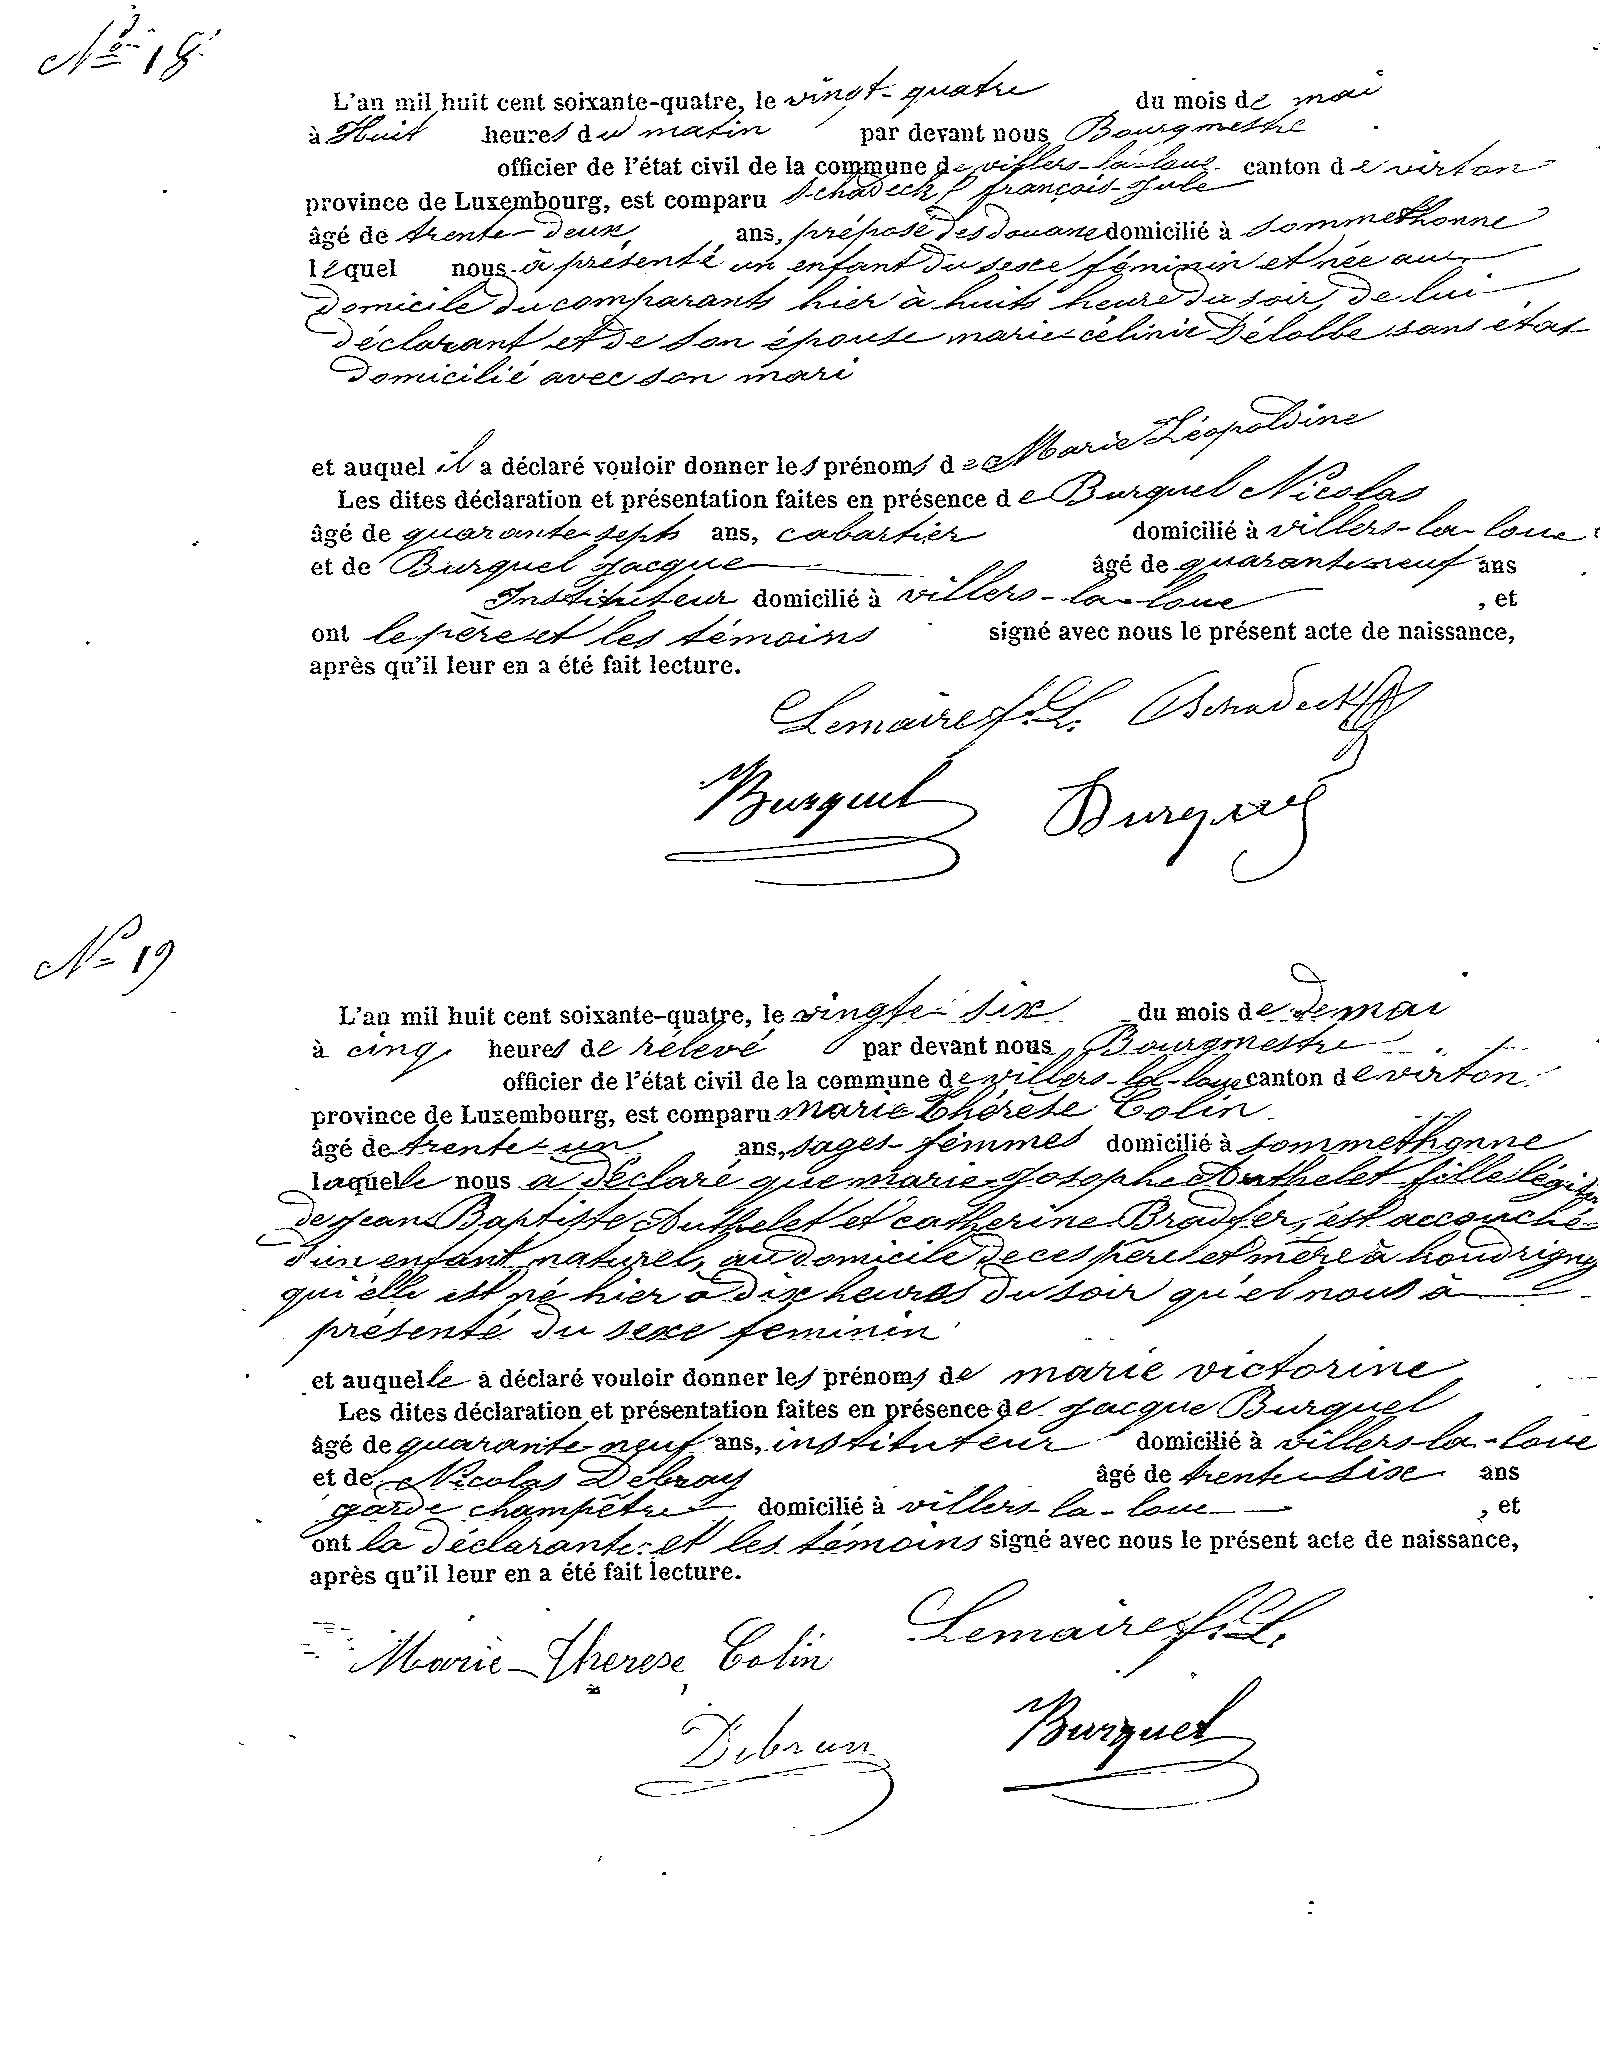 No 18
L'an mil huit cent soixante-quatre, le vingt-quatre du mois de mai
à Huit heures du matin par devant nous Bourgmestre
officier de l'état civil de la commune de villers-la-loue canton de virton
province de Luxembourg, est comparu Schadeck françois-Jule
âgé de trente-deux ans, préposé des douane domicilié à sommethonne
lequel nous à présenté un enfant du sexe féminin et née au
domicile du comparants hier à huits heure du soir, de lui
déclarant et de son épouse marie-célinie Délobbe sans état
domicilié avec son mari
et auquel il a déclaré vouloir donner les prénoms de Marie Léopoldine
Les dites déclaration et présentation faites en présence de Burquel Nicolas
âgé de quarante-sept ans, cabartier domicilié à villers-la-loue
et de Burquel Jacque âgé de quarante neuf ans
Instituteur domicilié à villers-la-loue , et
ont le père et les témoins signé avec nous le présent acte de naissance,
après qu'il leur en a été fait lecture.
Lemaire f.L. Schadeck
Burquel Burquel
No 19
L'an mil huit cent soixante-quatre, le vingte-six du mois de de mai
à cinq heures de rélevé par devant nous Bourgmestre
officier de l'état civil de la commune de villers-la-loue canton de virton
province de Luxembourg, est comparu marie Thérèse Colin
âgé de trente-un ans, sages-femmes domicilié à sommethonne
laquelle nous a déclaré que marie-Josophe Authelet fille légit
de Jean Baptiste Authelet et catherine Bradfer, est accouché
d'un enfant naturel, au domicile de ces père et mère à houdrigny
qu'elle est né hier à dix heures du soir qu'el nous à
présenté du sexe feminin
et auquelle à déclaré vouloir donner les prénoms de marie victorine
Les dites déclaration et présentation faites en présence de Jacque Burquel
âgé de quarante-neuf ans, instituteur domicilié à villers-la-loue
et de Nicolas Debray âgé de trente-sixe ans
garde champêtre domicilié à villers-la-loue , et
ont la déclarante et les témoins signé avec nous le présent acte de naissance,
après qu'il leur en a été fait lecture.
Marie-Therese Colin Lemaire f.L.
Burquel